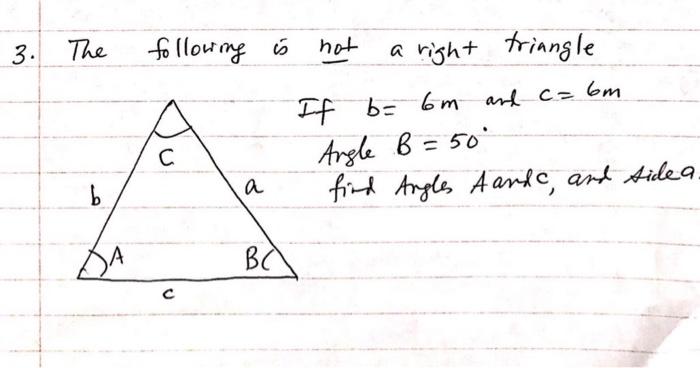 3. The following is not a right triangle
If b= 6m and c= 6m
Angle B = 50°
find Angles A and C, and side a.
C
b
a
A
B
c